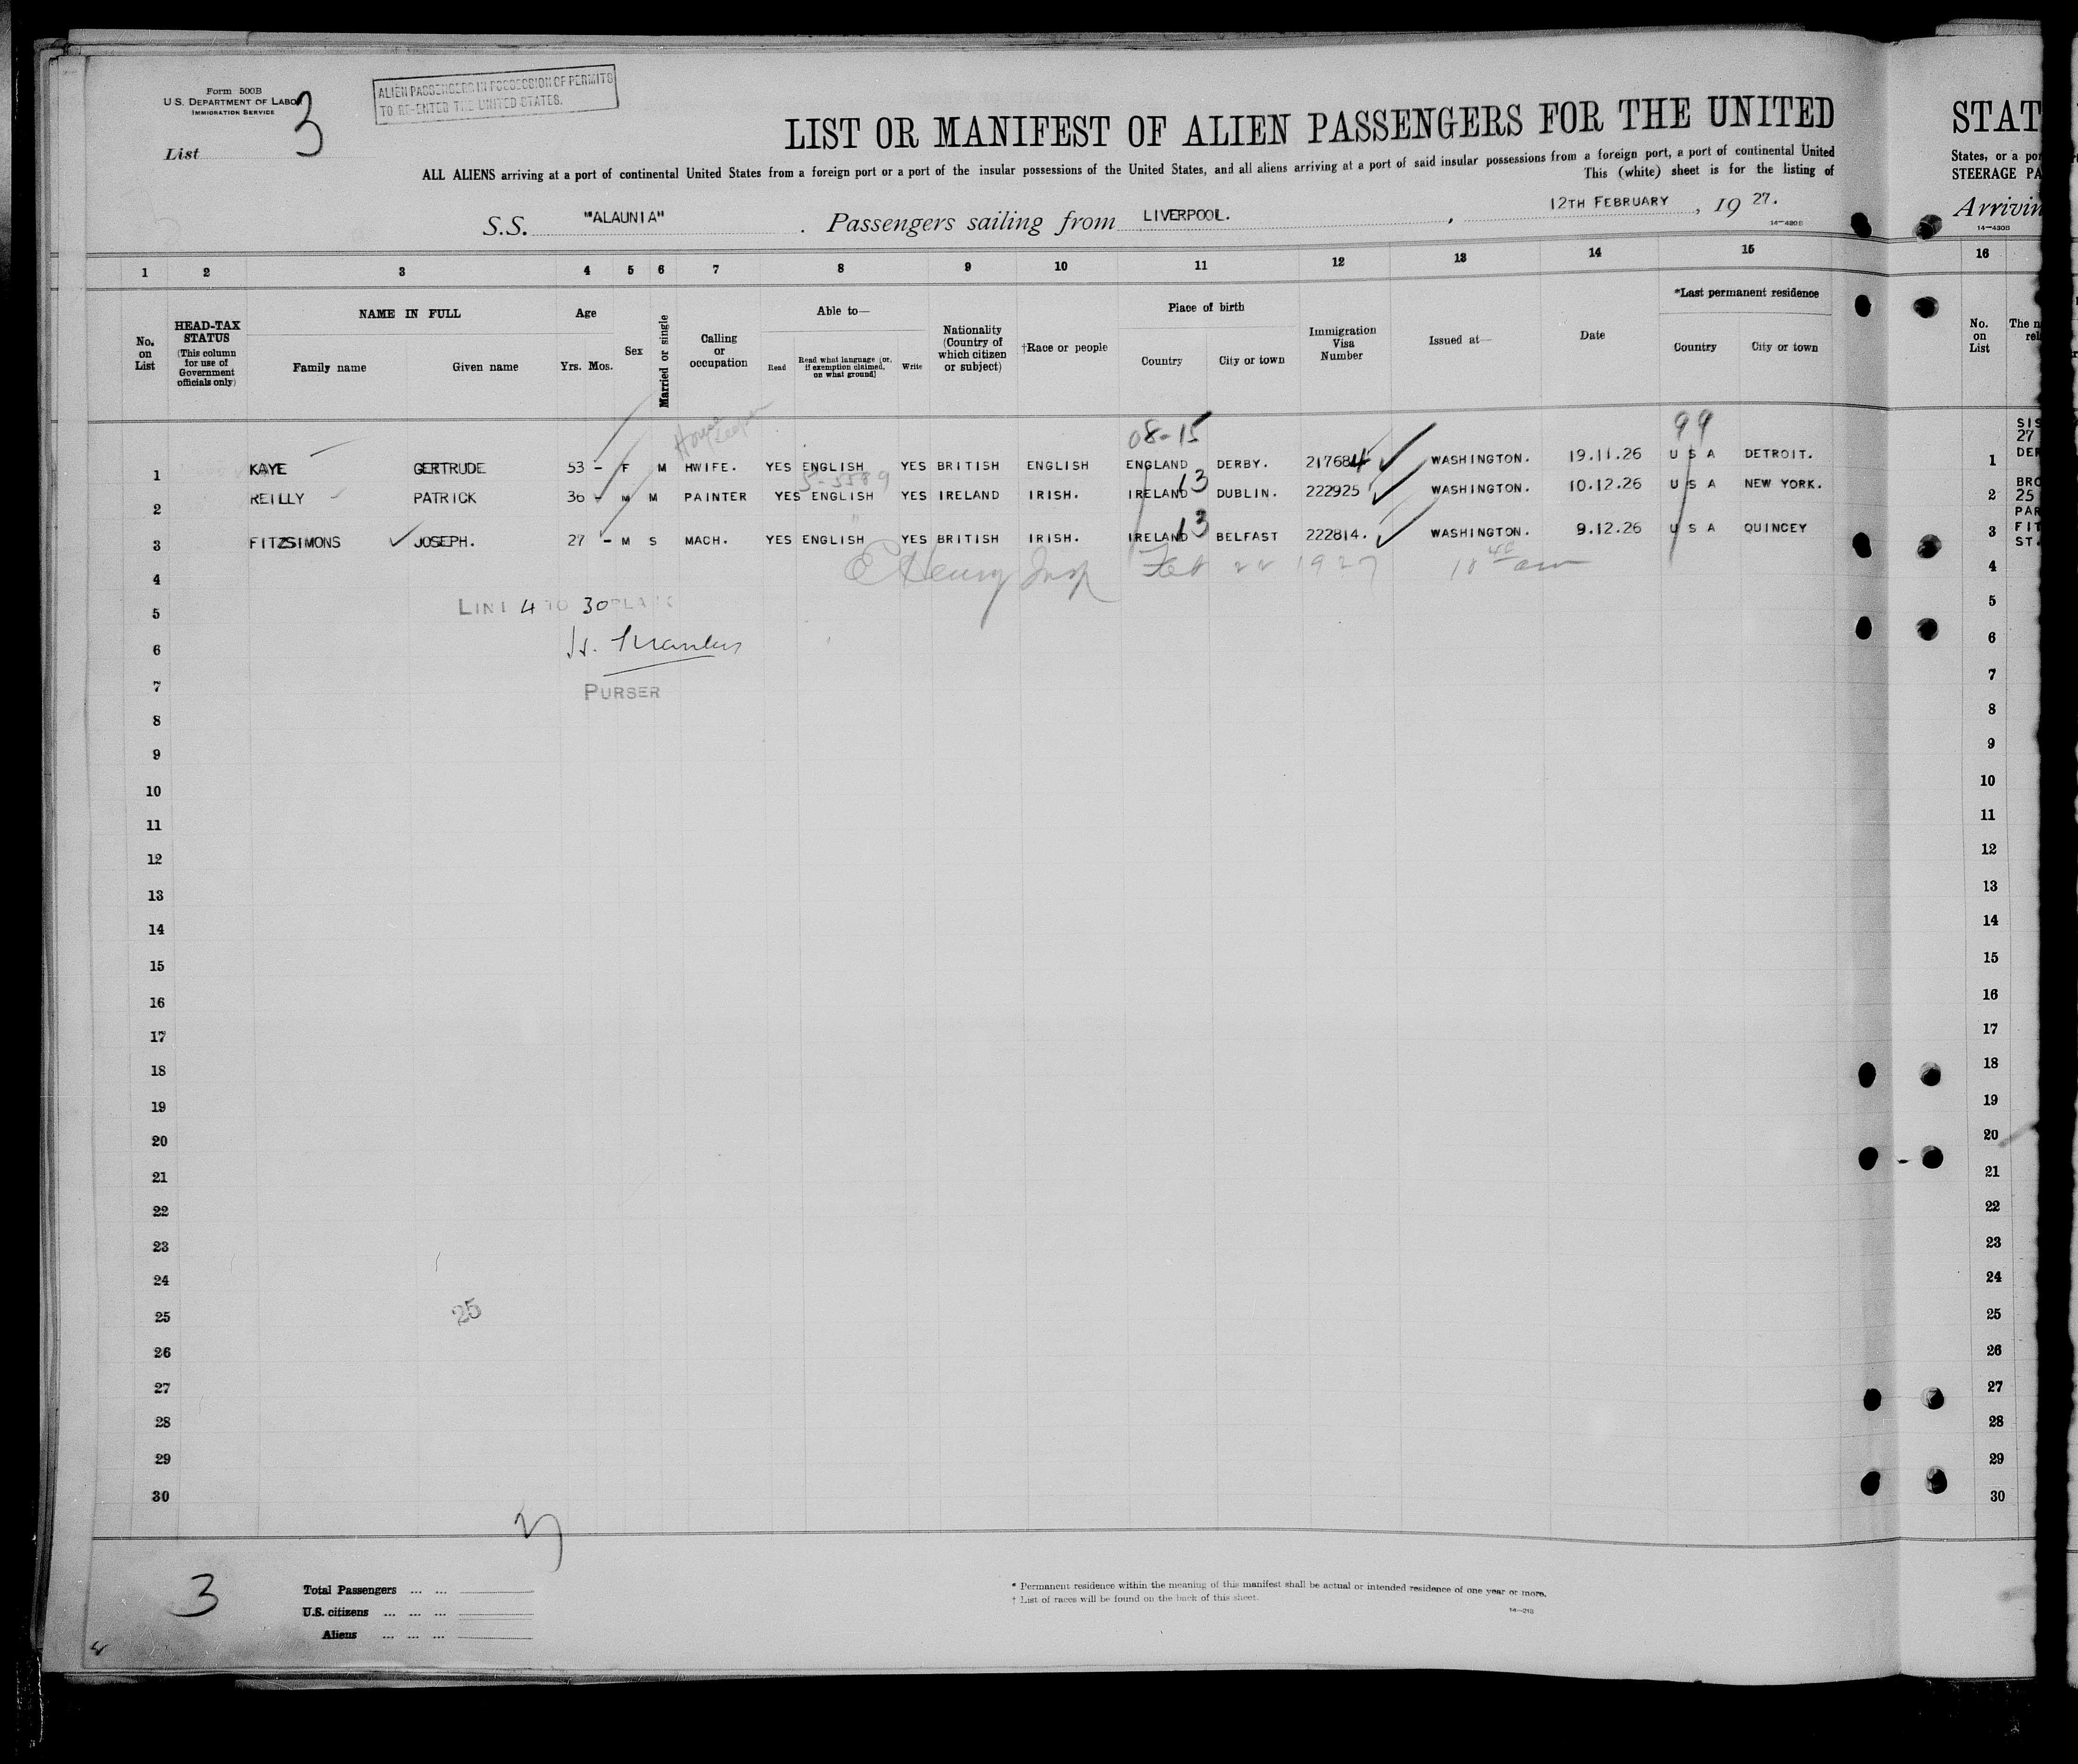 Form 500B
U.S. DEPARTMENT OF LABOR
IMMIGRATION SERVICE
List 3
ALIEN PASSENGERS IN POSSESSION OF PERMITS
TO RE-ENTER THE UNITED STATES.
LIST OR MANIFEST OF ALIEN PASSENGERS FOR THE UNITED
ALL ALIENS arriving at a port of continental United States from a foreign port or a port of the insular possessions of the United States, and all aliens arriving at a port of said insular possessions from a foreign port, a port of continental United
This (white) sheet is for the listing of
S.S. "ALAUNIA" . Passengers sailing from LIVERPOOL. , 12TH FEBRUARY , 19 27.
1 2 3 4 5 6 7 8 9 10 11 12 13 14 15
No. on List
HEAD-TAX STATUS (This column for use of Government officials only)
NAME IN FULL
Family name Given name
Age
Yrs. Mos.
Sex
Married or single
Calling or occupation
Able to—
Read
Read what language [or, if exemption claimed, on what ground]
Write
Nationality (Country of which citizen or subject)
†Race or people
Place of birth
Country City or town
Immigration Visa Number
Issued at—
Date
*Last permanent residence
Country City or town
House keeper 08-15 99
1 KAYE GERTRUDE 53 - F M HWIFE. YES ENGLISH YES BRITISH ENGLISH ENGLAND DERBY. 217684 WASHINGTON. 19.11.26 U S A DETROIT.
5-5589 13
2 REILLY PATRICK 36 - M M PAINTER YES ENGLISH YES IRELAND IRISH. IRELAND DUBLIN. 222925 WASHINGTON. 10.12.26 U S A NEW YORK.
13
3 FITZSIMONS JOSEPH. 27 - M S MACH. YES ENGLISH YES BRITISH IRISH. IRELAND BELFAST 222814. WASHINGTON. 9.12.26 U S A QUINCEY
4 Henry Insp Feb 22 1927 am
5 LINE 4 TO 30
6
7 PURSER
8
9
10
11
12
13
14
15
16
17
18
19
20
21
22
23
24
25 25
26
27
28
29
30
3
Total Passengers ... ...
U.S. citizens ... ... ...
Aliens ... ... ...
* Permanent residence within the meaning of this manifest shall be actual or intended residence of one year or more.
† List of races will be found on the back of this sheet.
STAT
States, or a por
STEERAGE PA
Arrivin
16
No. on List
The n
rel
SIS
27
1 DER
BRO
2 25
PAR
3 FIT
ST.
4
5
6
7
8
9
10
11
12
13
14
15
16
17
18
19
20
21
22
23
24
25
26
27
28
29
30